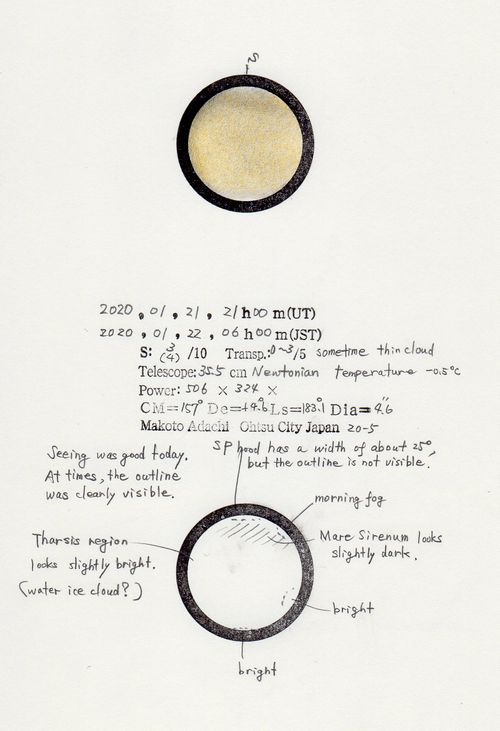 S
2020, 01, 21, 21h00m(UT)
2020, 01, 22, 06h00m(JST)
S: 3(4)/10 Transp.:0~3/5 sometime thin cloud
Telescope:35.5 cm Newtonian temperature -0.5°C
Power: 506 × 324 ×
CM=157° De=+4.6 Ls=183.1 Dia=4.6"
Makoto Adachi Ohtsu City Japan 20-5
SP hood has a width of about 25°,
but the outline is not visible.
Seeing was good today.
At times, the outline
was clearly visible.
morning fog
Mare Sirenum looks
slightly dark.
Tharsis region
looks slightly bright.
(water ice cloud?)
bright
bright